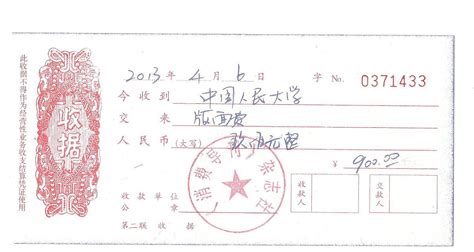 此收据不得作为经营性业务收支结算凭证使用
收据
2013 年 4 月 6 日 字 No. 0371433
今收到 中国人民大学
交来 版面费
人民币(大写) 玖佰元整
¥ 900.00
收款单位
公章
收款人
交款人
第二联 收据
杂志社